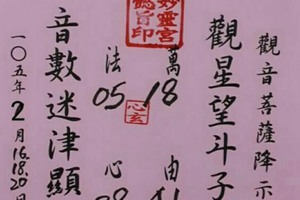 觀音菩薩降示
觀星望斗子
妙靈宮
旨印
萬 18 由
法 05 心
心玄
音數迷津顯
一○五年2月16.18.20日